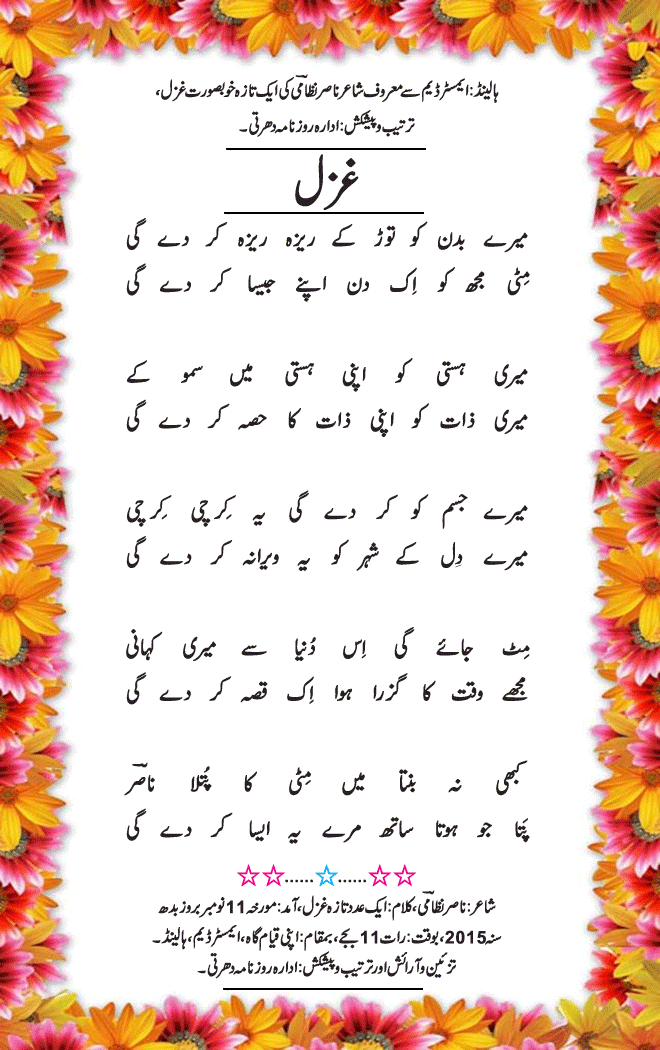 ہالینڈ: ایمسٹرڈیم سے معروف شاعر ناصر نظامیؔ کی ایک تازہ خوبصورت غزل،
ترتیب و پیشکش: ادارہ روزنامہ دھرتی۔
غزل
میرے بدن کو توڑ کے ریزہ ریزہ کر دے گی
مِٹی مجھ کو اِک دن اپنے جیسا کر دے گی
میری ہستی کو اپنی ہستی میں سمو کے
میری ذات کو اپنی ذات کا حصہ کر دے گی
میرے جسم کو کر دے گی یہ کِرچی کِرچی
میرے دِل کے شہر کو یہ ویرانہ کر دے گی
مِٹ جائے گی اِس دُنیا سے میری کہانی
مجھے وقت کا گزرا ہوا اِک قصہ کر دے گی
کبھی نہ بنتا میں مِٹی کا پُتلا ناصرؔ
پَتا جو ہوتا ساتھ مرے یہ ایسا کر دے گی
☆☆......☆......☆☆
شاعر: ناصر نظامیؔ، کلام: ایک عدد تازہ غزل، آمد: مورخہ 11 نومبر بروز بدھ
سنہ 2015، بوقت: رات 11 بجے، بمقام: اپنی قیام گاہ، ایمسٹرڈیم، ہالینڈ۔
تزئین و آرائش اور ترتیب و پیشکش: ادارہ روزنامہ دھرتی۔